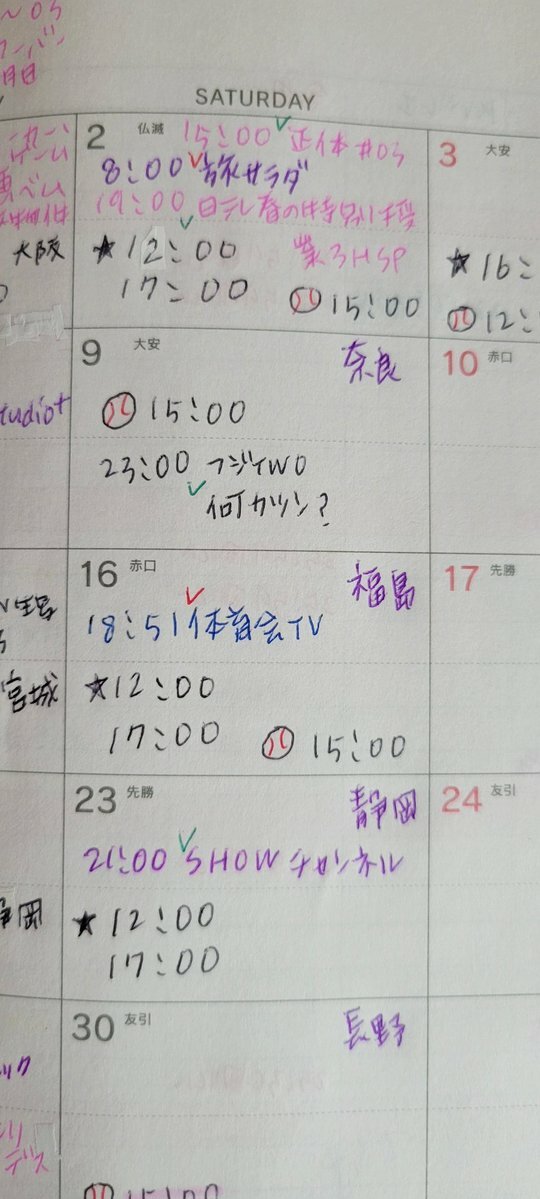 SATURDAY
2 仏滅 15:00 正体 #03
8:00 旅サラダ
19:00 日テレ春の特別授
業3HSP
★12:00
17:00
15:00
3 大安
★16:
12:
大阪
9 大安 奈良
15:00
23:00 フジTWO
何カツン?
10 赤口
tudio+
16 赤口 福島
18:51 体育会TV
★12:00
17:00
15:00
17 先勝
宮城
23 先勝 静岡
21:00 SHOWチャンネル
★12:00
17:00
24 友引
岡
30 友引 長野
15:00